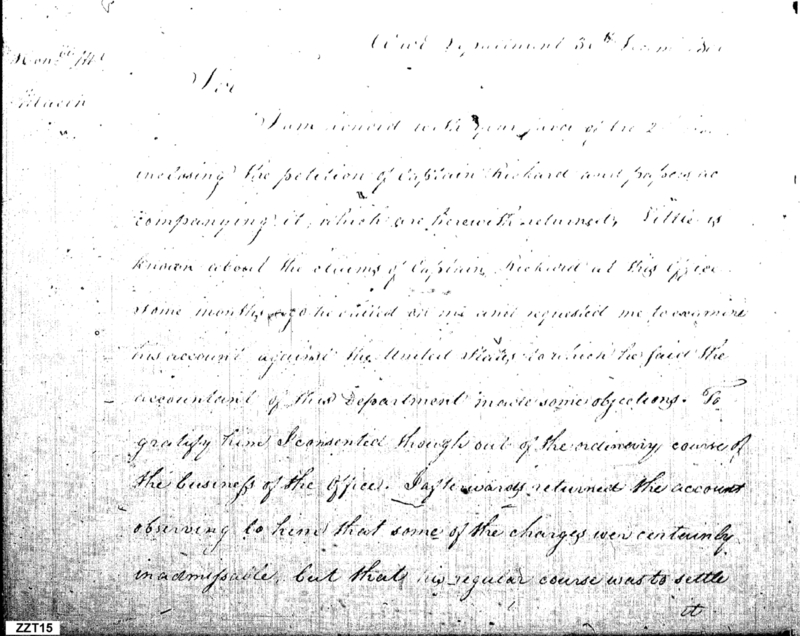 War Department 31st
Honble Mr
Sir
I am honord with your favor of the 2
inclosing the petition of Captain Rickard and papers ac
companying it, which are herewith returned, Little is
known about the claims of Captain Rickard at this Office
some months ago he called on me and requested me to examine
his account against the United States to which he said the
accountant of this Department made some objections. To
gratify him I consented though out of the ordinary course of
the business of the Office. I afterwards returned the account
observing to him that some of the charges were certainly
inadmissable, but that his regular course was to settle
it
ZZT15